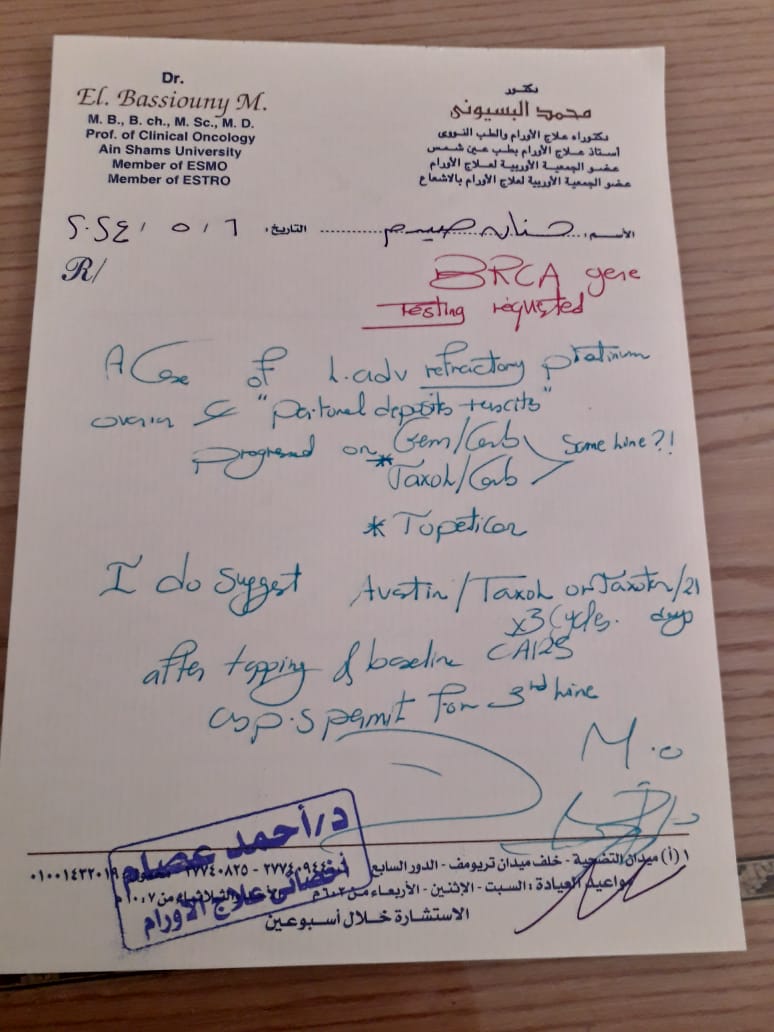 Dr.
El. Bassiouny M.
M. B., B. ch., M. Sc., M. D.
Prof. of Clinical Oncology
Ain Shams University
Member of ESMO
Member of ESTRO
دكتور
محمد البسيونى
دكتوراه علاج الأورام والطب النووى
أستاذ علاج الأورام بطب عين شمس
عضو الجمعية الأوربية لعلاج الأورام
عضو الجمعية الأوربية لعلاج الأورام بالاشعاع
الأسم: حنان التاريخ: ٦ / ٥ / ٢٠٢٤
R/
BRCA gene
Testing requested
A Case of L.adv refractory platinum
ovarian "peritoneal deposits + ascites"
progressed on * Gem/Carb
Taxol/Carb
Same line?!
* Topotican
I do suggest Avastin / Taxol or Taxoter/21 days
x3 Cycles.
after tapping & baseline CA125
as p.s permit for 3rd line
M.O
د/أحمد عصام
أخصائى علاج الأورام
١ (أ) ميدان التضحية - خلف ميدان تريومف - الدور السابع ٢٧٧٤٠٨٢٥ ٠١٠٠١٤٣٢٠١٩
مواعيد العيادة : السبت - الإثنين - الأربعاء من
الاستشارة خلال أسبوعين